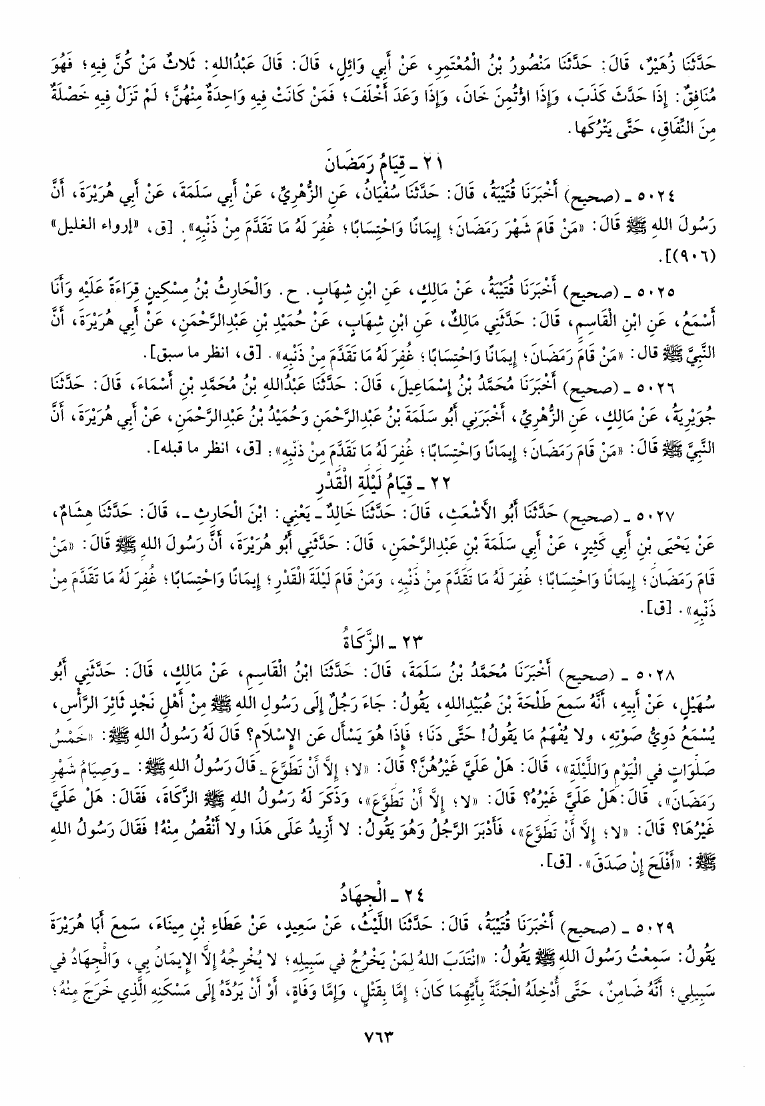 حَدَّثَنَا زُهَيْرٌ، قَالَ: حَدَّثَنَا مَنْصُورُ بْنُ الْمُعْتَمِرِ، عَنْ أَبِي وَائِلٍ، قَالَ: قَالَ عَبْدُاللهِ: ثَلاثٌ مَنْ كُنَّ فِيهِ؛ فَهُوَ
مُنَافِقٌ: إِذَا حَدَّثَ كَذَبَ، وَإِذَا اؤْتُمِنَ خَانَ، وَإِذَا وَعَدَ أَخْلَفَ؛ فَمَنْ كَانَتْ فِيهِ وَاحِدَةٌ مِنْهُنَّ؛ لَمْ تَزَلْ فِيهِ خَصْلَةٌ
مِنَ النِّفَاقِ، حَتَّى يَتْرُكَها.
٢١ ـ قِيَامُ رَمَضَانَ
٥٠٢٤ ـ (صحيح) أَخْبَرَنَا قُتَيْبَةُ، قَالَ: حَدَّثَنَا سُفْيَانُ، عَنِ الزُّهْرِيِّ، عَنْ أَبِي سَلَمَةَ، عَنْ أَبِي هُرَيْرَةَ، أَنَّ
رَسُولَ اللهِ ﷺ قَالَ: «مَنْ قَامَ شَهْرَ رَمَضَانَ؛ إِيمَانًا وَاحْتِسَابًا؛ غُفِرَ لَهُ مَا تَقَدَّمَ مِنْ ذَنْبِهِ». [ق، «إرواء الغليل»
(٩٠٦)].
٥٠٢٥ ـ (صحيح) أَخْبَرَنَا قُتَيْبَةُ، عَنْ مَالِكٍ، عَنِ ابْنِ شِهَابٍ. ح. وَالْحَارِثُ بْنُ مِسْكِينٍ قِرَاءَةً عَلَيْهِ وَأَنَا
أَسْمَعُ، عَنِ ابْنِ الْقَاسِمِ، قَالَ: حَدَّثَنِي مَالِكٌ، عَنِ ابْنِ شِهَابٍ، عَنْ حُمَيْدِ بْنِ عَبْدِالرَّحْمَنِ، عَنْ أَبِي هُرَيْرَةَ، أَنَّ
النَّبِيَّ ﷺ قال: «مَنْ قَامَ رَمَضَانَ؛ إِيمَانًا وَاحْتِسَابًا؛ غُفِرَ لَهُ مَا تَقَدَّمَ مِنْ ذَنْبِهِ». [ق، انظر ما سبق].
٥٠٢٦ ـ (صحيح) أَخْبَرَنَا مُحَمَّدُ بْنُ إِسْمَاعِيلَ، قَالَ: حَدَّثَنَا عَبْدُاللهِ بْنُ مُحَمَّدِ بْنِ أَسْمَاءَ، قَالَ: حَدَّثَنَا
جُوَيْرِيَةُ، عَنْ مَالِكٍ، عَنِ الزُّهْرِيِّ، أَخْبَرَنِي أَبُو سَلَمَةَ بْنُ عَبْدِالرَّحْمَنِ وَحُمَيْدُ بْنُ عَبْدِالرَّحْمَنِ، عَنْ أَبِي هُرَيْرَةَ، أَنَّ
النَّبِيَّ ﷺ قَالَ: «مَنْ قَامَ رَمَضَانَ؛ إِيمَانًا وَاحْتِسَابًا؛ غُفِرَ لَهُ مَا تَقَدَّمَ مِنْ ذَنْبِهِ». [ق، انظر ما قبله].
٢٢ ـ قِيَامُ لَيْلَةِ الْقَدْرِ
٥٠٢٧ ـ (صحيح) حَدَّثَنَا أَبُو الأَشْعَثِ، قَالَ: حَدَّثَنَا خَالِدٌ ـ يَعْنِي: ابْنَ الْحَارِثِ ـ، قَالَ: حَدَّثَنَا هِشَامٌ،
عَنْ يَحْيَى بْنِ أَبِي كَثِيرٍ، عَنْ أَبِي سَلَمَةَ بْنِ عَبْدِالرَّحْمَنِ، قَالَ: حَدَّثَنِي أَبُو هُرَيْرَةَ، أَنَّ رَسُولَ اللهِ ﷺ قَالَ: «مَنْ
قَامَ رَمَضَانَ؛ إِيمَانًا وَاحْتِسَابًا؛ غُفِرَ لَهُ مَا تَقَدَّمَ مِنْ ذَنْبِهِ، وَمَنْ قَامَ لَيْلَةَ الْقَدْرِ؛ إِيمَانًا وَاحْتِسَابًا؛ غُفِرَ لَهُ مَا تَقَدَّمَ مِنْ
ذَنْبِهِ». [ق].
٢٣ ـ الزَّكَاةُ
٥٠٢٨ ـ (صحيح) أَخْبَرَنَا مُحَمَّدُ بْنُ سَلَمَةَ، قَالَ: حَدَّثَنَا ابْنُ الْقَاسِمِ، عَنْ مَالِكٍ، قَالَ: حَدَّثَنِي أَبُو
سُهَيْلٍ، عَنْ أَبِيهِ، أَنَّهُ سَمِعَ طَلْحَةَ بْنَ عُبَيْدِاللهِ، يَقُولُ: جَاءَ رَجُلٌ إِلَى رَسُولِ اللهِ ﷺ مِنْ أَهْلِ نَجْدٍ ثَائِرَ الرَّأْسِ،
يُسْمَعُ دَوِيُّ صَوْتِهِ، ولا يُفْهَمُ مَا يَقُولُ! حَتَّى دَنَا؛ فَإِذَا هُوَ يَسْأَل عَنِ الإِسْلَامِ؟ قَالَ لَهُ رَسُولُ اللهِ ﷺ: «خَمْسُ
صَلَوَاتٍ في الْيَوْمِ وَاللَّيْلَةِ»، قَالَ: هَلْ عَلَيَّ غَيْرُهُنَّ؟ قَالَ: «لا؛ إِلَّا أَنْ تَطَوَّعَ ـ قَالَ رَسُولُ اللهِ ﷺ: ـ وَصِيَامُ شَهْرِ
رَمَضَانَ»، قَالَ: هَلْ عَلَيَّ غَيْرُهُ؟ قَالَ: «لا؛ إِلَّا أَنْ تَطَوَّعَ»، وَذَكَرَ لَهُ رَسُولُ اللهِ ﷺ الزَّكَاةَ، فَقَالَ: هَلْ عَلَيَّ
غَيْرُهَا؟ قَالَ: «لا؛ إِلَّا أَنْ تَطَوَّعَ»، فَأَدْبَرَ الرَّجُلُ وَهُوَ يَقُولُ: لا أَزِيدُ عَلَى هَذَا ولا أَنْقُصُ مِنْهُ! فَقَالَ رَسُولُ اللهِ
ﷺ: «أَفْلَحَ إِنْ صَدَقَ». [ق].
٢٤ ـ الْجِهَادُ
٥٠٢٩ ـ (صحيح) أَخْبَرَنَا قُتَيْبَةُ، قَالَ: حَدَّثَنَا اللَّيْثُ، عَنْ سَعِيدٍ، عَنْ عَطَاءِ بْنِ مِينَاءَ، سَمِعَ أَبَا هُرَيْرَةَ
يَقُولُ: سَمِعْتُ رَسُولَ اللهِ ﷺ يَقُولُ: «انْتَدَبَ اللهُ لِمَنْ يَخْرُجُ في سَبِيلِهِ؛ لا يُخْرِجُهُ إِلَّا الإِيمَانُ بِي، وَالْجِهَادُ في
سَبِيلِي؛ أَنَّهُ ضَامِنٌ، حَتَّى أُدْخِلَهُ الْجَنَّةَ بِأَيِّهِمَا كَانَ؛ إِمَّا بِقَتْلٍ، وَإِمَّا وَفَاةٍ، أَوْ أَنْ يَرُدَّهُ إِلَى مَسْكَنِهِ الَّذِي خَرَجَ مِنْهُ؛
٧٦٣